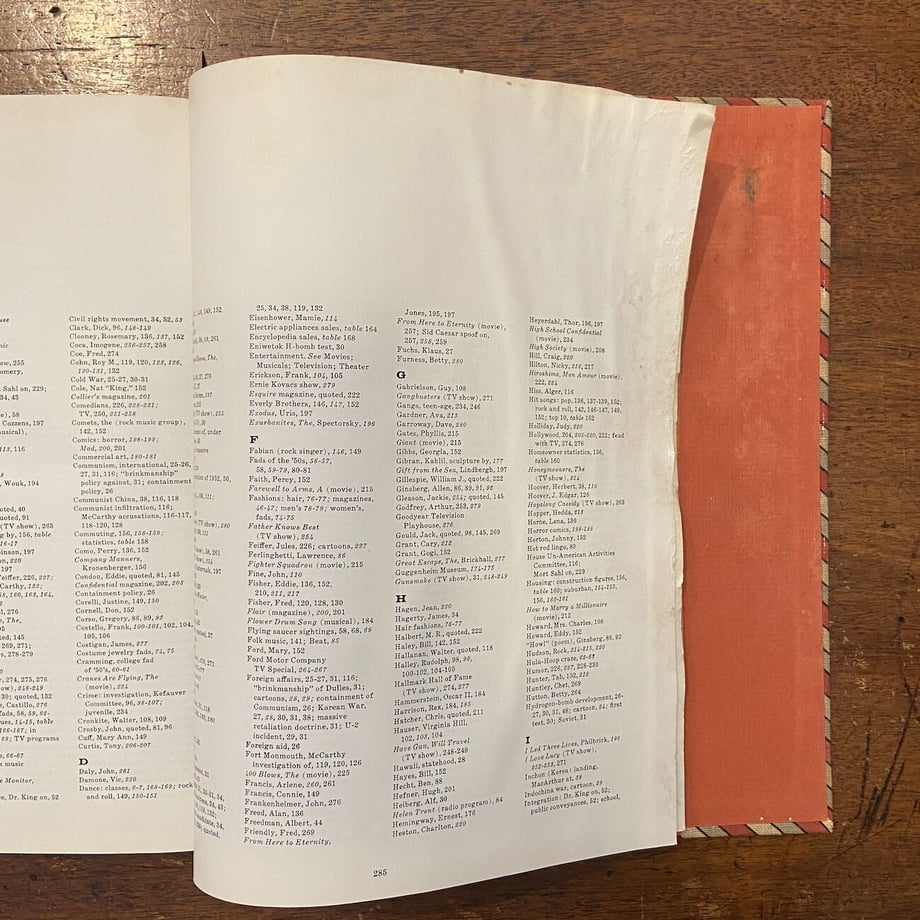 Sahl on, 229;
34, 43
Cozzens, 197
Wouk, 194
Civil rights movement, 34, 52, 58
Clark, Dick, 96, 148-149
Clooney, Rosemary, 136, 137, 152
Coca, Imogene, 256-257, 258
Coe, Fred, 274
Cohn, Roy M., 119, 120, 123, 126,
130-131, 132
Cold War, 25-27, 30-31
Cole, Nat "King," 152
Collier's magazine, 201
Comedians, 226, 228-231;
TV, 250, 251-258
Comets, the (rock music group),
142, 152
Comics: horror, 198-199;
Mad, 200, 201
Commercial art, 180-181
Communism, international, 25-26,
27, 31, 116; "brinkmanship"
policy against, 31; containment
policy, 26
Communist China, 38, 116, 118
Communist infiltration, 116;
McCarthy accusations, 116-117,
118-120, 128
Commuting, 156, 158-159;
statistics, table 158
Como, Perry, 136, 152
Company Manners,
Kronenberger, 156
Condon, Eddie, quoted, 81, 145
Confidential magazine, 202, 203
Containment policy, 26
Corelli, Justine, 149, 150
Cornell, Don, 152
Corso, Gregory, 86, 89, 92
Costello, Frank, 100-101, 102, 104,
105, 106
Costigan, James, 277
Costume jewelry fads, 74, 75
Cramming, college fad
of '50's, 60-61
Cranes Are Flying, The
(movie), 224
Crime: investigation, Kefauver
Committee, 96, 98-107;
juvenile, 234
Cronkite, Walter, 108, 109
Crosby, John, quoted, 81, 96
Cuff, Mary Ann, 149
Curtis, Tony, 206-207
D
Daly, John, 261
Damone, Vic, 220
Dance: classes, 6-7, 168-169; rock
and roll, 149, 150-151
25, 34, 38, 119, 132
Eisenhower, Mamie, 114
Electric appliances sales, table 164
Encyclopedia sales, table 168
Eniwetok H-bomb test, 30
Entertainment. See Movies;
Musicals; Television; Theater
Erickson, Frank, 104, 105
Ernie Kovacs show, 279
Esquire magazine, quoted, 222
Everly Brothers, 146, 147, 152
Exodus, Uris, 197
Exurbanites, The, Spectorsky, 196
F
Fabian (rock singer), 146, 149
Fads of the '50s, 56-57,
58, 59-79, 80-81
Faith, Percy, 152
Farewell to Arms, A (movie), 215
Fashions: hair, 76-77; magazines,
46-47; men's 78-79; women's,
fads, 74-75
Father Knows Best
(TV show), 254
Feiffer, Jules, 226; cartoons, 227
Ferlinghetti, Lawrence, 86
Fighter Squadron (movie), 215
Fine, John, 110
Fisher, Eddie, 136, 152,
210, 211, 217
Fisher, Fred, 120, 128, 130
Flair (magazine), 200, 201
Flower Drum Song (musical), 184
Flying saucer sightings, 58, 68, 69
Folk music, 141; Beat, 85
Ford, Mary, 152
Ford Motor Company
TV Special, 264-267
Foreign affairs, 25-27, 31, 116;
"brinkmanship" of Dulles, 31;
cartoons, 28, 29; containment of
Communism, 26; Korean War,
27, 28, 30, 31, 38; massive
retaliation doctrine, 31; U-2
incident, 29, 31
Foreign aid, 26
Fort Monmouth, McCarthy
investigation of, 119, 120, 126
400 Blows, The (movie), 225
Francis, Arlene, 260, 261
Francis, Connie, 149
Frankenheimer, John, 276
Freed, Alan, 136
Freedman, Albert, 44
Friendly, Fred, 269
From Here to Eternity,
Jones, 195, 197
From Here to Eternity (movie),
257; Sid Caesar spoof on,
257, 258, 259
Fuchs, Klaus, 27
Furness, Betty, 280
G
Gabrielson, Guy, 108
Gangbusters (TV show), 271
Gangs, teen-age, 234, 246
Gardner, Ava, 213
Garroway, Dave, 280
Gates, Phyllis, 215
Giant (movie), 215
Gibbs, Georgia, 152
Gibran, Kahlil, sculpture by, 177
Gift from the Sea, Lindbergh, 197
Gillespie, William J., quoted, 222
Ginsberg, Allen, 86, 89, 91, 92
Gleason, Jackie, 254; quoted, 145
Godfrey, Arthur, 253, 279
Goodyear Television
Playhouse, 276
Gould, Jack, quoted, 98, 145, 269
Grant, Cary, 212
Grant, Gogi, 152
Great Escape, The, Brickhall, 277
Guggenheim Museum, 174-175
Gunsmoke (TV show), 31, 248-249
H
Hagen, Jean, 220
Hagerty, James, 34
Hair fashions, 76-77
Halbert, M. R., quoted, 222
Haley, Bill, 142, 152
Hallanan, Walter, quoted, 118
Halley, Rudolph, 98, 99,
100-102, 104-105
Hallmark Hall of Fame
(TV show), 274, 277
Hammerstein, Oscar II, 184
Harrison, Rex, 184, 185
Hatcher, Chris, quoted, 211
Hauser, Virginia Hill,
102, 103, 104
Have Gun, Will Travel
(TV show), 248-249
Hawaii, statehood, 28
Hayes, Bill, 152
Hecht, Ben, 88
Hefner, Hugh, 201
Heiberg, Alf, 30
Helen Trent (radio program), 84
Hemingway, Ernest, 176
Heston, Charlton, 220
Heyerdahl, Thor, 196, 197
High School Confidential
(movie), 234
High Society (movie), 208
Hill, Craig, 220
Hilton, Nicky, 216, 217
Hiroshima, Mon Amour (movie),
222, 224
Hiss, Alger, 116
Hit songs: pop, 136, 137-139, 152;
rock and roll, 142, 146-147, 149,
152; top 10, table 152
Holliday, Judy, 220
Hollywood, 204, 205-220, 221; feud
with TV, 274, 276
Homeowner statistics, 156,
table 160
Honeymooners, The
(TV show), 254
Hoover, Herbert, 38, 116
Hoover, J. Edgar, 126
Hopalong Cassidy (TV show), 263
Hopper, Hedda, 215
Horne, Lena, 136
Horror comics, 198-199
Horton, Johnny, 152
Hot rod lingo, 80
House Un-American Activities
Committee, 116;
Mort Sahl on, 229
ousing: construction figures, 156,
table 160; suburban, 154-155,
156, 160-161
How to Marry a Millionaire
(movie), 212
Howard, Mrs. Charles, 108
Howard, Eddy, 152
"Howl" (poem), Ginsberg, 86, 92
Hudson, Rock, 214-215, 220
Hula-Hoop craze, 62-63
Humor, 226, 227, 228-230
Hunter, Tab, 152, 218
Huntley, Chet, 269
Hutton, Betty, 264
Hydrogen-bomb development, 26-
27, 30, 31, 48; cartoon, 24; first
test, 30; Soviet, 31
I
I Led Three Lives, Philbrick, 196
I Love Lucy (TV show),
252-253, 271
Inchon (Korea) landing,
MacArthur at, 29
Indochina war, cartoon, 29
Integration: Dr. King on, 52;
public conveyances, 52; school,
285